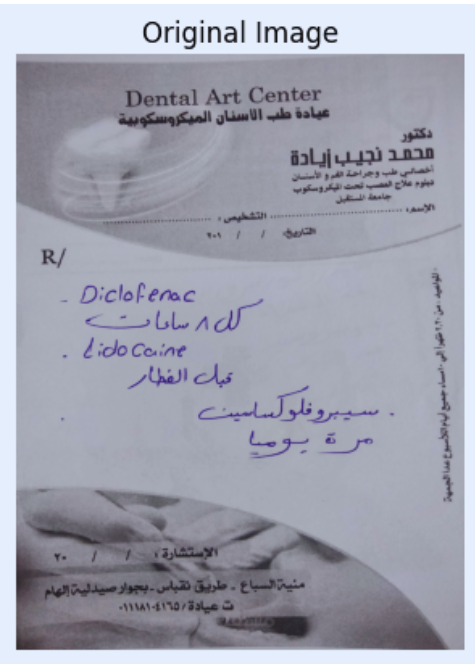 Original Image
Dental Art Center
عيادة طب الأسنان الميكروسكوبية
دكتور
محمد نجيب زيادة
أخصائي طب وجراحة الفم و الأسنان
دبلوم علاج العصب تحت الميكروسكوب
جامعة المستقبل
الإسم : .......... التشخيص : ..........
التاريخ: / / ٢٠١
R/
- Diclofenac
كل ٨ ساعات
. Lidocaine
قبل الفطار
. سيبروفلوكساسين
مرة يوميا
المواعيد : من ٢,٣٠ ظهراً إلى ١٠ مساء جميع أيام الأسبوع عدا الجمعة
الإستشارة : / / ٢٠
منية السباع - طريق نقباس - بجوار صيدلية إلهام
ت عيادة / ٠١١١٨١٠٤١٦٥